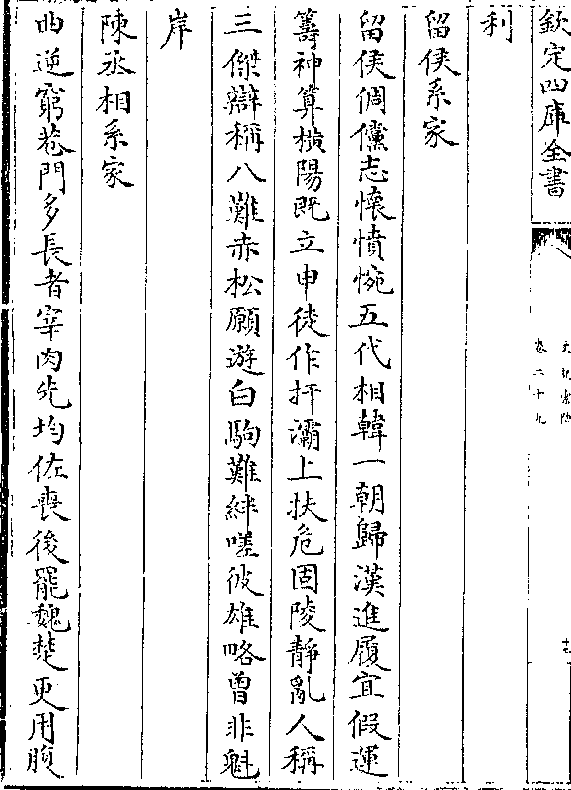 欽定四庫全書
史記索隱
卷二十九
利
留侯系家
留侯倜儻志懷憤惋五代相韓一朝歸漢進履宜假運
籌神算橫陽既立申徒作扞灞上扶危固陵靜亂人稱
三傑辯稱八難赤松願遊白駒難絆嗟彼雄略曾非魁
岸
陳丞相系家
曲逆窮巷門多長者宰肉先均佐喪後罷魏楚更用腹